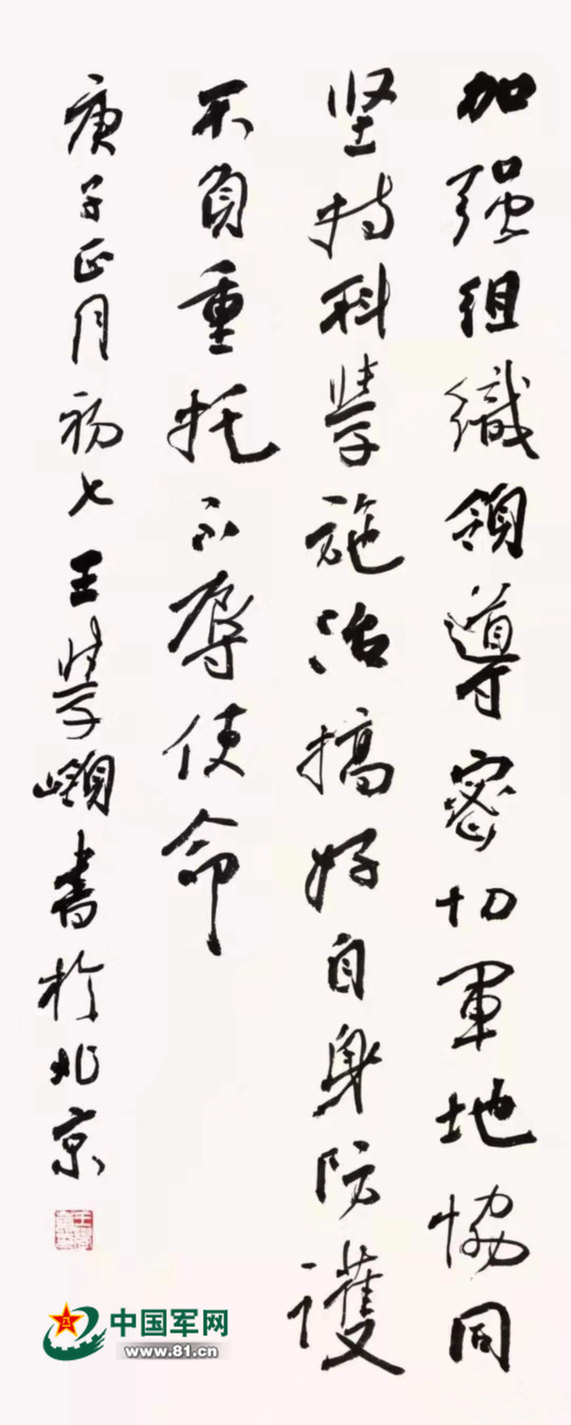 加强组織領導密切軍地協同
坚持科學施治搞好自身防護
不負重托不辱使命
庚子正月初七王學嶺書於北京
中国军网
www.81.cn